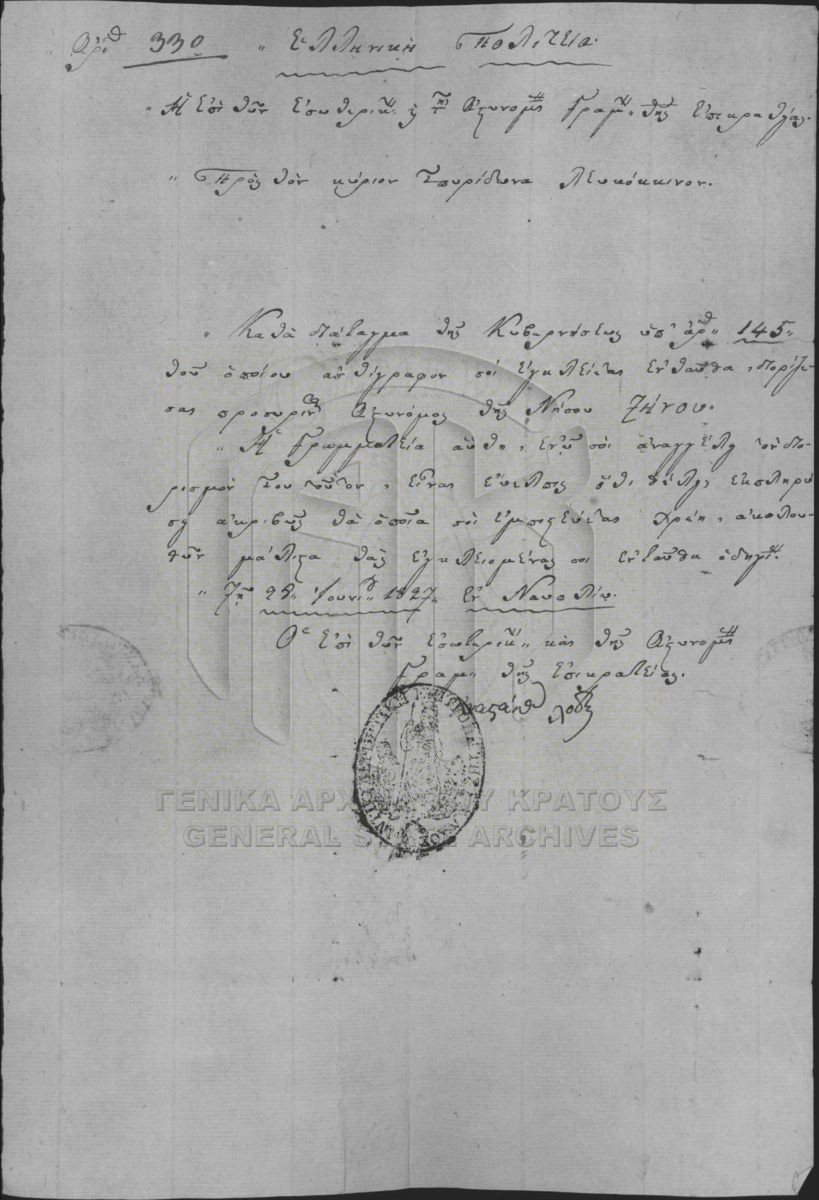 Ἀρ. 330 " Ἑλληνικὴ Πολιτεία.
" Ἡ ἐπὶ τῶν Ἐσωτερικ: καὶ τῆς Ἀστυνομ: Γραμ: τῆς Ἐπικρατείας.
" Πρὸς τὸν κύριον Σπυρίδωνα Λευκόκκινον.
" Κατὰ διάταγμα τῆς Κυβερνήσεως ὑπ' ἀρ. 145
τοῦ ὁποίου ἀντίγραφον σοὶ ἐγκλείεται ἐνταῦθα, διορίζε-
σαι προσωριν: Ἀστυνόμος τῆς Νήσου Τήνου.
" Ἡ Γραμματεία αὕτη, ἐνῷ σοὶ ἀναγγέλλει τὸν διο-
ρισμόν σου τοῦτον, εἶναι εὔελπις ὅτι θέλεις ἐκπληρώ-
σει ἀκριβῶς τὰ ὁποῖα σοὶ ἐμπιστεύεται χρέη, ἀκολου-
θῶν μάλιστα ταῖς ἐγκλειομέναις σοι ἐνταῦθα ὁδηγί:
" Τῇ 28 Ἰουνί: 1827, ἐν Ναυπλίῳ.
Ὁ ἐπὶ τῶν Ἐσωτερικ: καὶ τῆς Ἀστυνομ:
Γραμ: τῆς Ἐπικρατείας.
ΓΕΝΙΚΑ ΑΡΧΕΙΑ ΤΟΥ ΚΡΑΤΟΥΣ
GENERAL STATE ARCHIVES